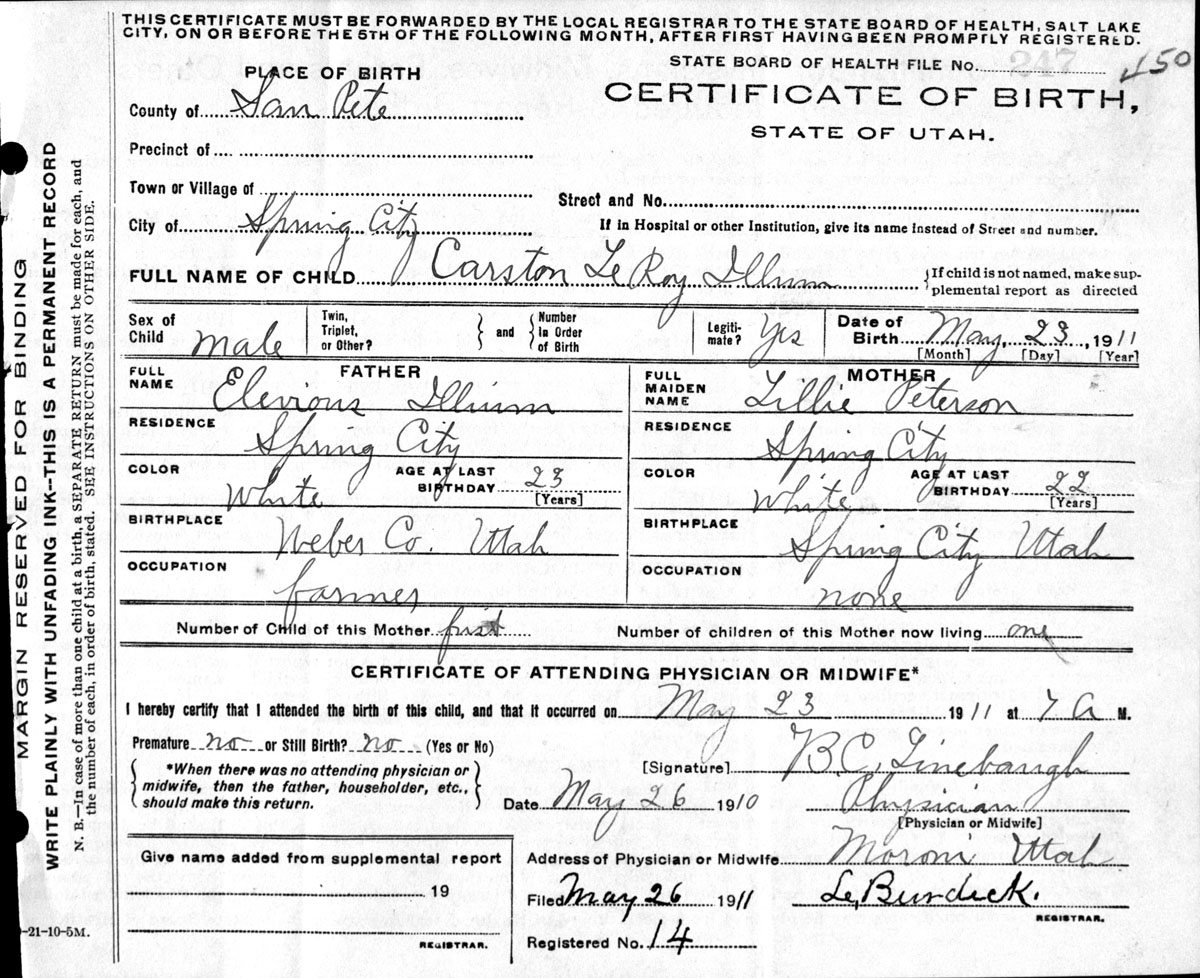 THIS CERTIFICATE MUST BE FORWARDED BY THE LOCAL REGISTRAR TO THE STATE BOARD OF HEALTH, SALT LAKE
CITY, ON OR BEFORE THE 5TH OF THE FOLLOWING MONTH, AFTER FIRST HAVING BEEN PROMPTLY REGISTERED.
STATE BOARD OF HEALTH FILE NO. 247 450
PLACE OF BIRTH
CERTIFICATE OF BIRTH,
STATE OF UTAH.
County of San Pete
Precinct of
Town or Village of
Street and No.
City of Spring City
If in Hospital or other Institution, give its name instead of Street and number.
FULL NAME OF CHILD Carston Le Roy Illium {If child is not named, make sup-
plemental report as directed
Sex of Child Male Twin, Triplet, or Other? } and { Number in Order of Birth Legiti-mate? Yes Date of Birth May, 23, 1911
[Month] [Day] [Year]
FATHER MOTHER
FULL NAME Elevious Illium FULL MAIDEN NAME Lillie Peterson
RESIDENCE Spring City RESIDENCE Spring City
COLOR White AGE AT LAST BIRTHDAY 23 [Years] COLOR White AGE AT LAST BIRTHDAY 22 [Years]
BIRTHPLACE Weber Co. Utah BIRTHPLACE Spring City Utah
OCCUPATION farmer OCCUPATION none
Number of Child of this Mother first Number of children of this Mother now living one
CERTIFICATE OF ATTENDING PHYSICIAN OR MIDWIFE*
I hereby certify that I attended the birth of this child, and that it occurred on May 23 1911 at 7 A M.
Premature no or Still Birth? no (Yes or No)
[Signature] B.C. Linebaugh
{ *When there was no attending physician or
midwife, then the father, householder, etc.,
should make this return. }
Date May 26 1910 Physician
[Physician or Midwife]
Give name added from supplemental report
19
REGISTRAR.
Address of Physician or Midwife Moroni Utah
Filed May 26 1911 Burdick.
REGISTRAR.
Registered No. 14
-21-10-5M.
MARGIN RESERVED FOR BINDING
WRITE PLAINLY WITH UNFADING INK--THIS IS A PERMANENT RECORD
N. B.--In case of more than one child at a birth, a SEPARATE RETURN must be made for each, and
the number of each, in order of birth, stated. SEE INSTRUCTIONS ON OTHER SIDE.